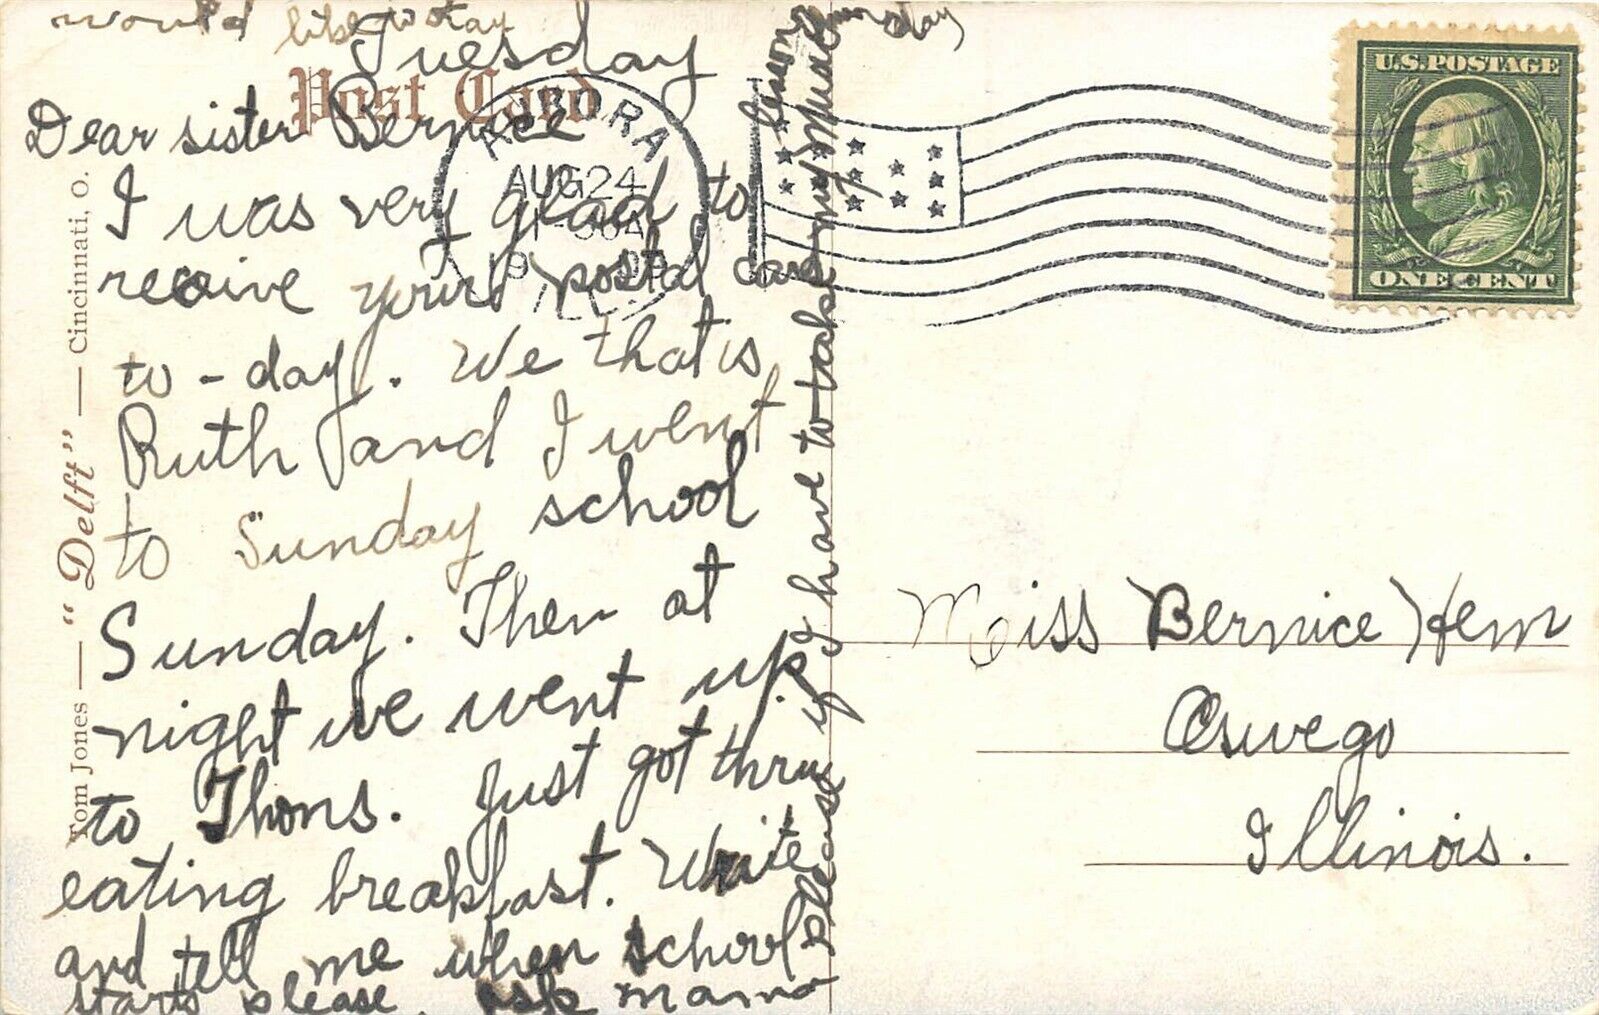 Post Card
Tuesday
Dear sister Bernice
I was very glad to
receive your postal card
to-day. We that is
Ruth and I went
to Sunday school
Sunday. Then at
night we went up
to Thons. Just got thru
eating breakfast. Write
and tell me when school
starts please. Ask mama
please if I have to take my music
lesson day
would like to stay
"Delft"
Tom Jones — "Delft" — Cincinnati, O.
AURORA
AUG 24
U.S. POSTAGE
ONE CENT
Miss Bernice Hem
Oswego
Illinois.